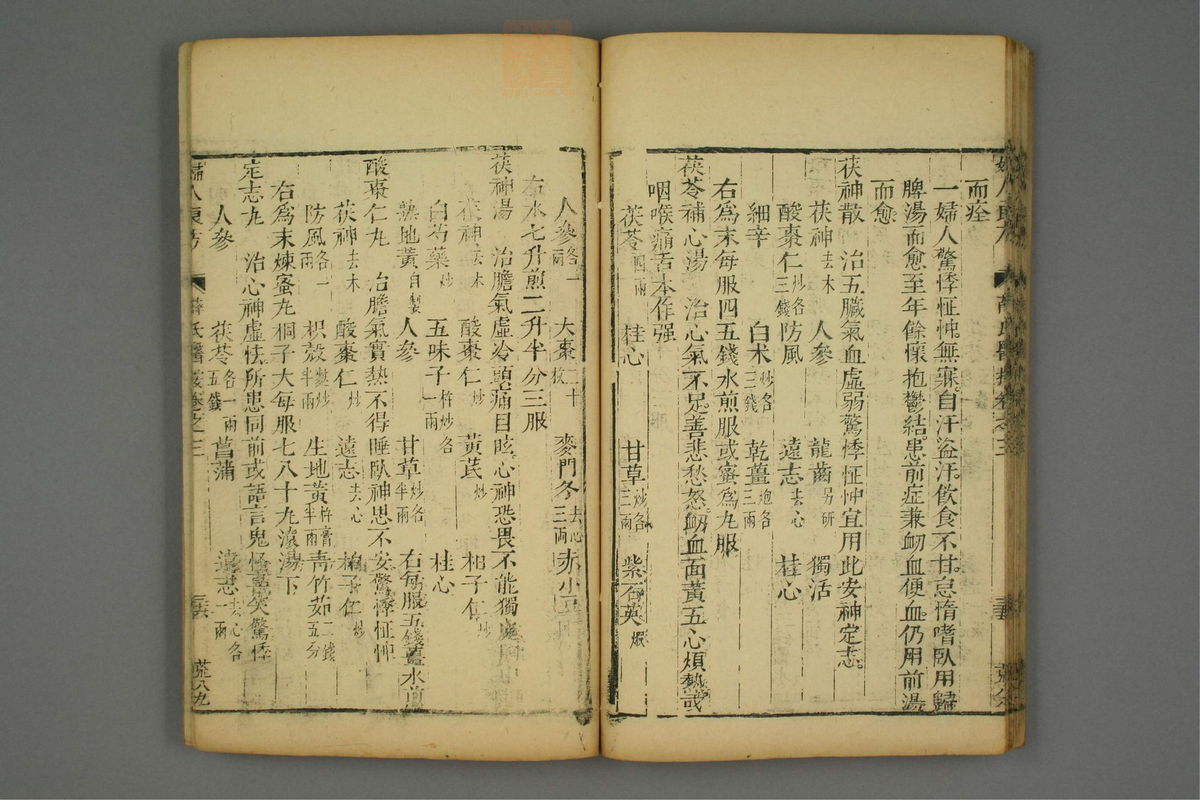 而痊
一婦人驚悸怔忡無寐自汗盗汗飲食不甘怠惰嗜臥用歸
脾湯而愈至年餘懷抱鬱結患前症兼衂血便血仍用前湯
而愈
茯神散 治五臟氣血虛弱驚悸怔忡宜用此安神定志
茯神去木 人參 龍齒另研 獨活
酸棗仁炒各三錢 防風 遠志去心 桂心
細辛 白术炒各三錢 乾薑炮各三兩
右爲末每服四五錢水煎服或蜜爲丸服
茯苓補心湯 治心氣不足善悲愁怒衂血面黃五心煩熱或
咽喉痛舌本作强
茯苓四兩 桂心 甘草炒各三兩 紫石英煅
人參各一兩 大棗二十枚 麥門冬去心三兩 赤小豆
右水七升煎二升半分三服
茯神湯 治膽氣虛冷頭痛目眩心神恐畏不能獨處
茯神去木 酸棗仁炒 黃芪炒 柏子仁炒
白芍藥炒 五味子杵炒各一兩 桂心
熟地黃自製 人參 甘草炒各半兩 右每服五錢薑水煎
酸棗仁丸 治膽氣實熱不得睡臥神思不安驚悸怔忡
茯神去木 酸棗仁炒 遠志去心 柏子仁炒
防風各一兩 枳殼麩炒半兩 生地黃杵膏半兩 靑竹茹二錢五分
右爲末煉蜜丸桐子大每服七八十丸滾湯下
定志丸 治心神虛怯所患同前或語言鬼怪喜笑驚悸
人參 茯苓各一兩五錢 菖蒲 遠志去心各一兩
婦人良方 薛氏醫按卷之三 荒八九